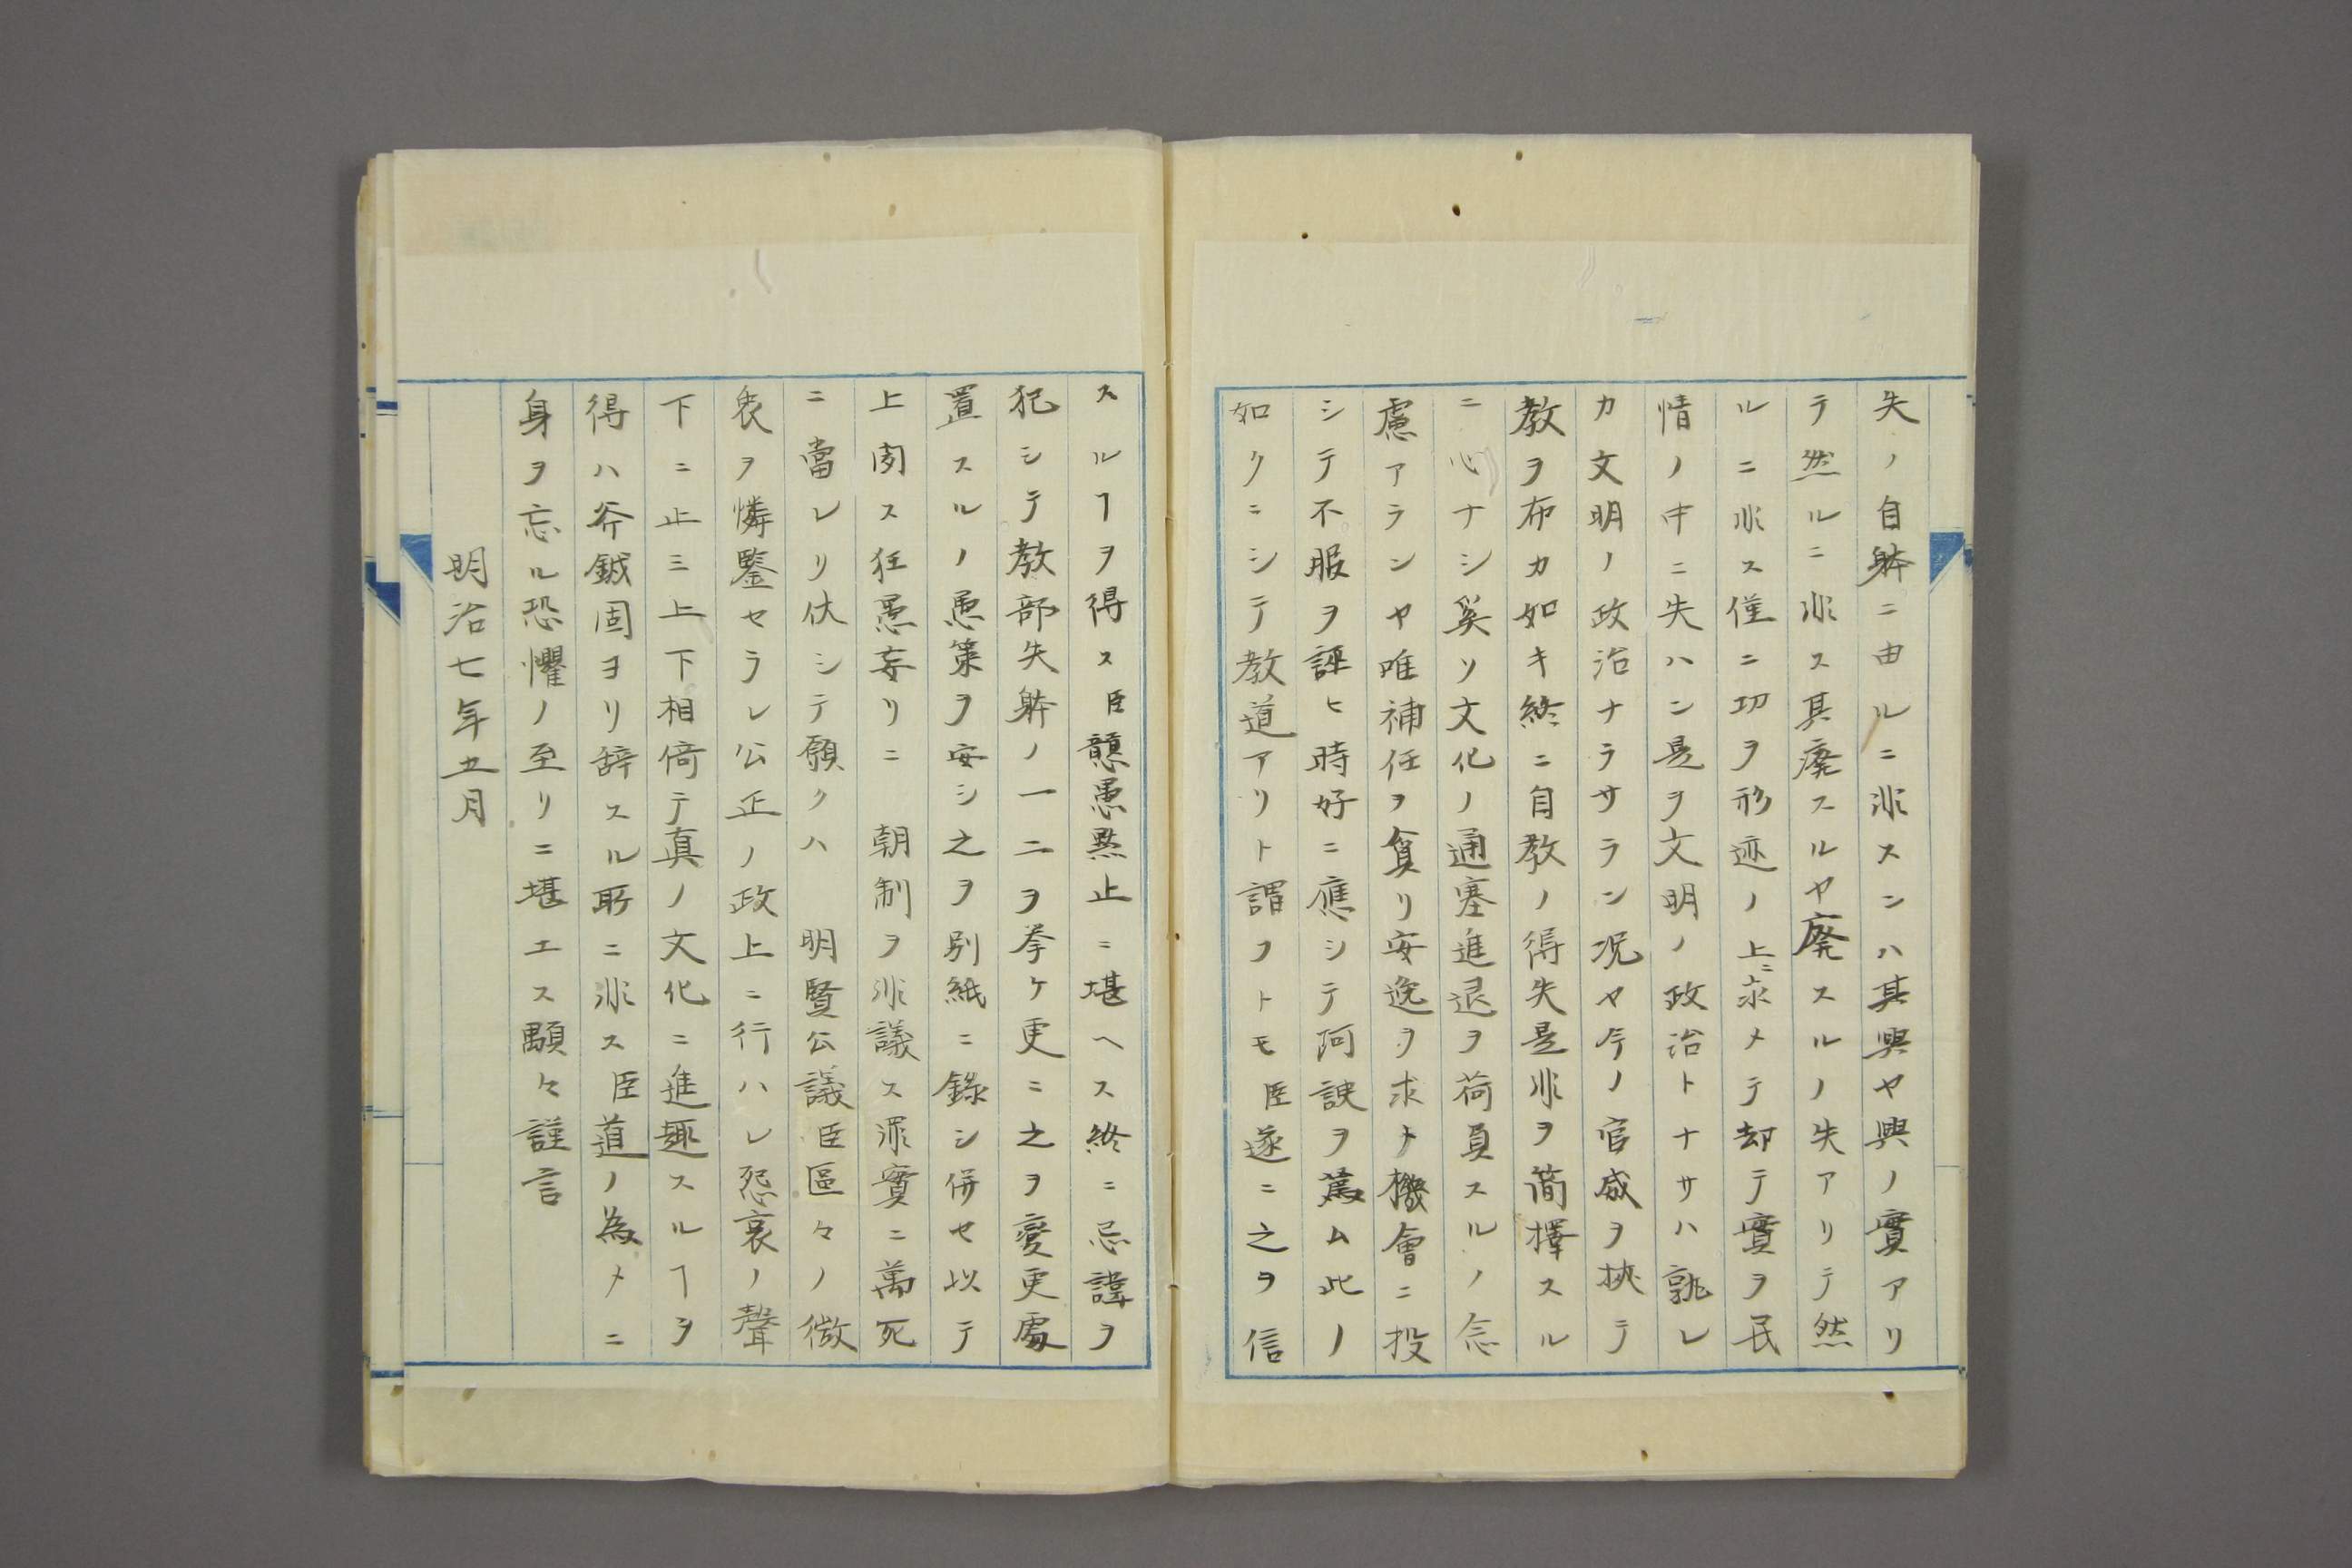 失ノ自躰ニ由ルニ非スンハ其興ヤ興ノ實アリ
テ然ルニ非ス其廃スルヤ廃スルノ失アリテ然
ルニ非ス僅ニ切ヲ形迹ノ上ニ求メテ却テ實ヲ民
情ノ中ニ失ハン是ヲ文明ノ政治トナサハ孰レ
カ文明ノ政治ナラサラン况ヤ今ノ官威ヲ挾テ
教ヲ布カ如キ終ニ自教ノ得失是非ヲ簡擇スル
ニ心ナシ奚ソ文化ノ通塞進退ヲ荷負スルノ念
慮アランヤ唯補任ヲ貪リ安逸ヲ求ト機會ニ投
シテ不服ヲ誣ヒ時好ニ應シテ阿諛ヲ為ム此ノ
如クニシテ教道アリト謂フトモ臣遂ニ之ヲ信
スルヿヲ得ス臣戇愚黙止ニ堪ヘス終ニ忌諱ヲ
犯シテ教部失躰ノ一二ヲ挙ケ更ニ之ヲ變更處
置スルノ愚策ヲ安シ之ヲ別紙ニ錄シ併セ以テ
上聞ス狂愚妄リニ 朝制ヲ非議ス罪實ニ萬死
ニ當レリ伏シテ願クハ 明賢公議臣區々ノ微
衷ヲ憐鑒セラレ公正ノ政上ニ行ハレ怨哀ノ聲
下ニ止ミ上下相倚テ真ノ文化ニ進趣スルヿヲ
得ハ斧鉞固ヨリ辞スル所ニ非ス臣道ノ為メニ
身ヲ忘ル恐懼ノ至リニ堪エス顒々謹言
明治七年五月